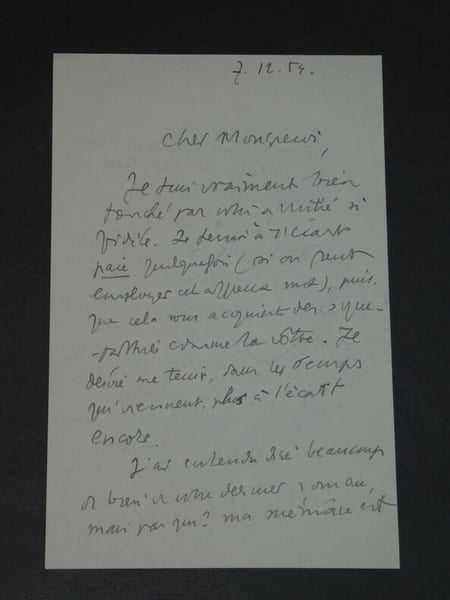 7.12.54.
Cher Mongrevi,
Je suis vraiment bien
touché par votre amitié si
fidèle. Se tenir à l'écart
paie quelquefois (si on peut
employer cet affreux mot), puis-
que cela vous acquiert des sym-
-pathies comme la vôtre. Je
désire me tenir, dans les temps
qui viennent, plus à l'écart
encore.
J'ai entendu dire beaucoup
de bien de votre dernier roman,
mais par qui? ma mémoire est